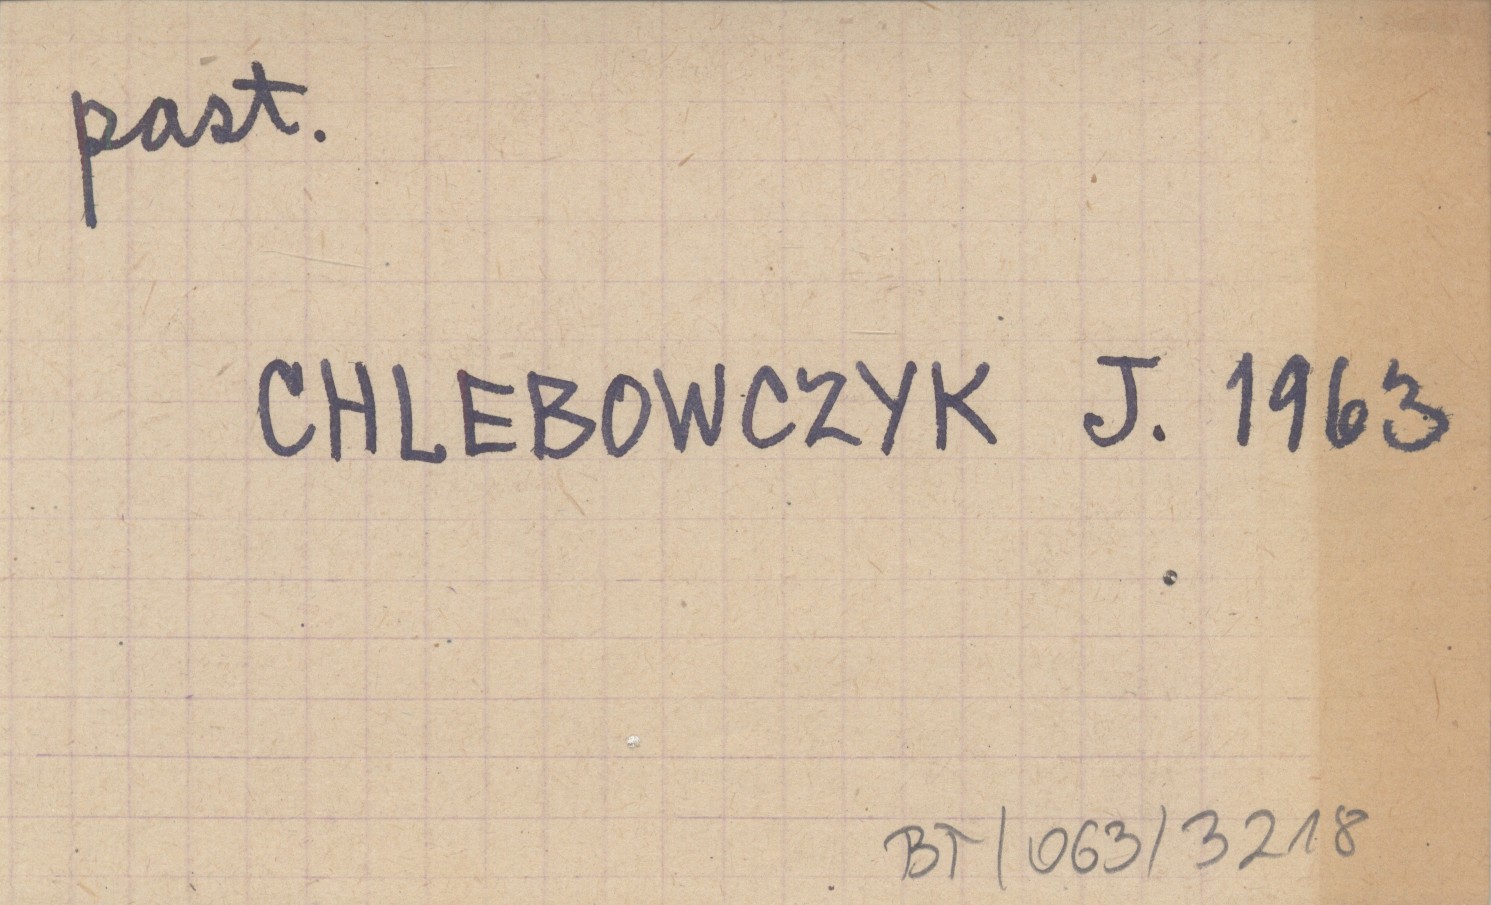 past.
CHLEBOWCZYK J. 1963
BT/063/3218